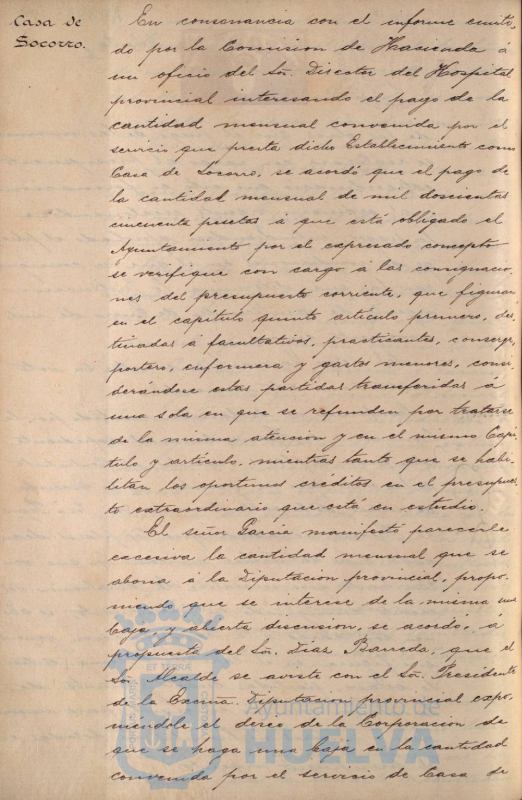 Casa de
Socorro.
En consonancia con el informe emiti-
do por la Comision de Hacienda á
un oficio del Sr. Director del Hospital
provincial interesando el pago de la
cantidad mensual convenida por el
servicio que presta dicho Establecimiento como
Casa de Socorro, se acordó que el pago de
la cantidad mensual de mil doscientas
cincuenta pesetas á que está obligado el
Ayuntamiento por el expresado concepto
se verifique con cargo á las consignacio-
nes del presupuesto corriente, que figuran
en el capítulo quinto artículo primero, des-
tinadas a facultativos, practicantes, conserge,
portero, enfermera y gastos menores, consi-
derándose estas partidas transferidas á
una sola en que se refunden por tratarse
de la misma atencion y en el mismo Capí-
tulo y artículo, mientras tanto que se habi-
litan los oportunos créditos en el presupues-
to extraordinario que está en estudio.
El señor García manifestó parecerle
excesiva la cantidad mensual que se
abona á la Diputacion provincial, propo-
niendo que se interese de la misma una
baja, y abierta discusion, se acordo, á
propuesta del Sr. Diaz Barreda, que el
Sr. Alcalde se aviste con el Sr. Presidente
de la Excma. Diputacion provincial expo-
niéndole el deseo de la Corporacion de
que se haga una baja en la cantidad
convenida por el servicio de Casa de
ET TERRÆ
Ayuntamiento de
HUELVA